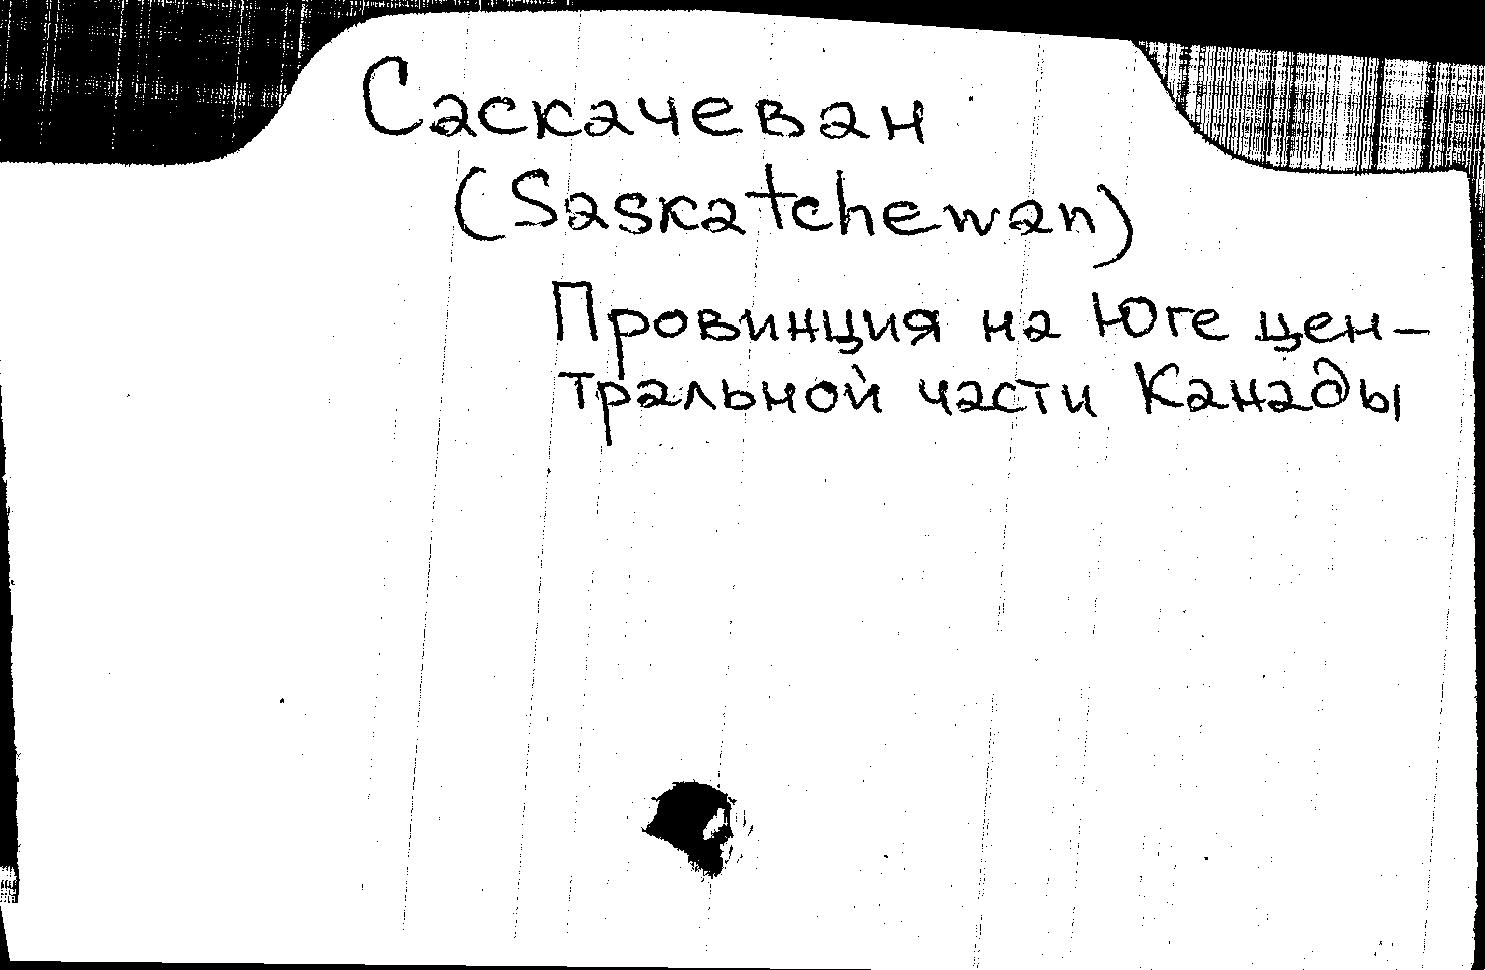 Саскачеван
(Saskatchewan)
Провинция на Юге цен-
тральной части Канады